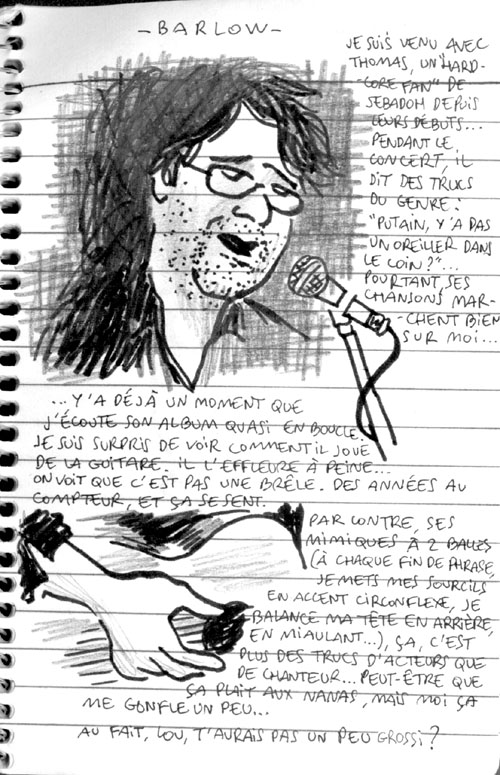 - BARLOW -
JE SUIS VENU AVEC
THOMAS, UN "HARD-
-CORE FAN" DE
SEBADOH DEPUIS
LEURS DÉBUTS...
PENDANT LE
CONCERT, IL
DIT DES TRUCS
DU GENRE:
"PUTAIN, Y'A PAS
UN OREILLER DANS
LE COIN?"...
POURTANT, SES
CHANSONS MAR-
-CHENT BIEN
SUR MOI...
...Y'A DÉJÀ UN MOMENT QUE
J'ÉCOUTE SON ALBUM QUASI EN BOUCLE.
JE SUIS SURPRIS DE VOIR COMMENT IL JOUE
DE LA GUITARE. IL L'EFFLEURE À PEINE...
ON VOIT QUE C'EST PAS UNE BRÊLE. DES ANNÉES AU
COMPTEUR, ET ÇA SE SENT.
PAR CONTRE, SES
MIMIQUES À 2 BALLES
(À CHAQUE FIN DE PHRASE,
JE METS MES SOURCILS
EN ACCENT CIRCONFLEXE, JE
BALANCE MA TÊTE EN ARRIÈRE,
EN MIAULANT...), ÇA, C'EST
PLUS DES TRUCS D'ACTEURS QUE
DE CHANTEUR... PEUT-ÊTRE QUE
ÇA PLAÎT AUX NANAS, MAIS MOI ÇA
ME GONFLE UN PEU...
AU FAIT, LOU, T'AURAIS PAS UN PEU GROSSI?